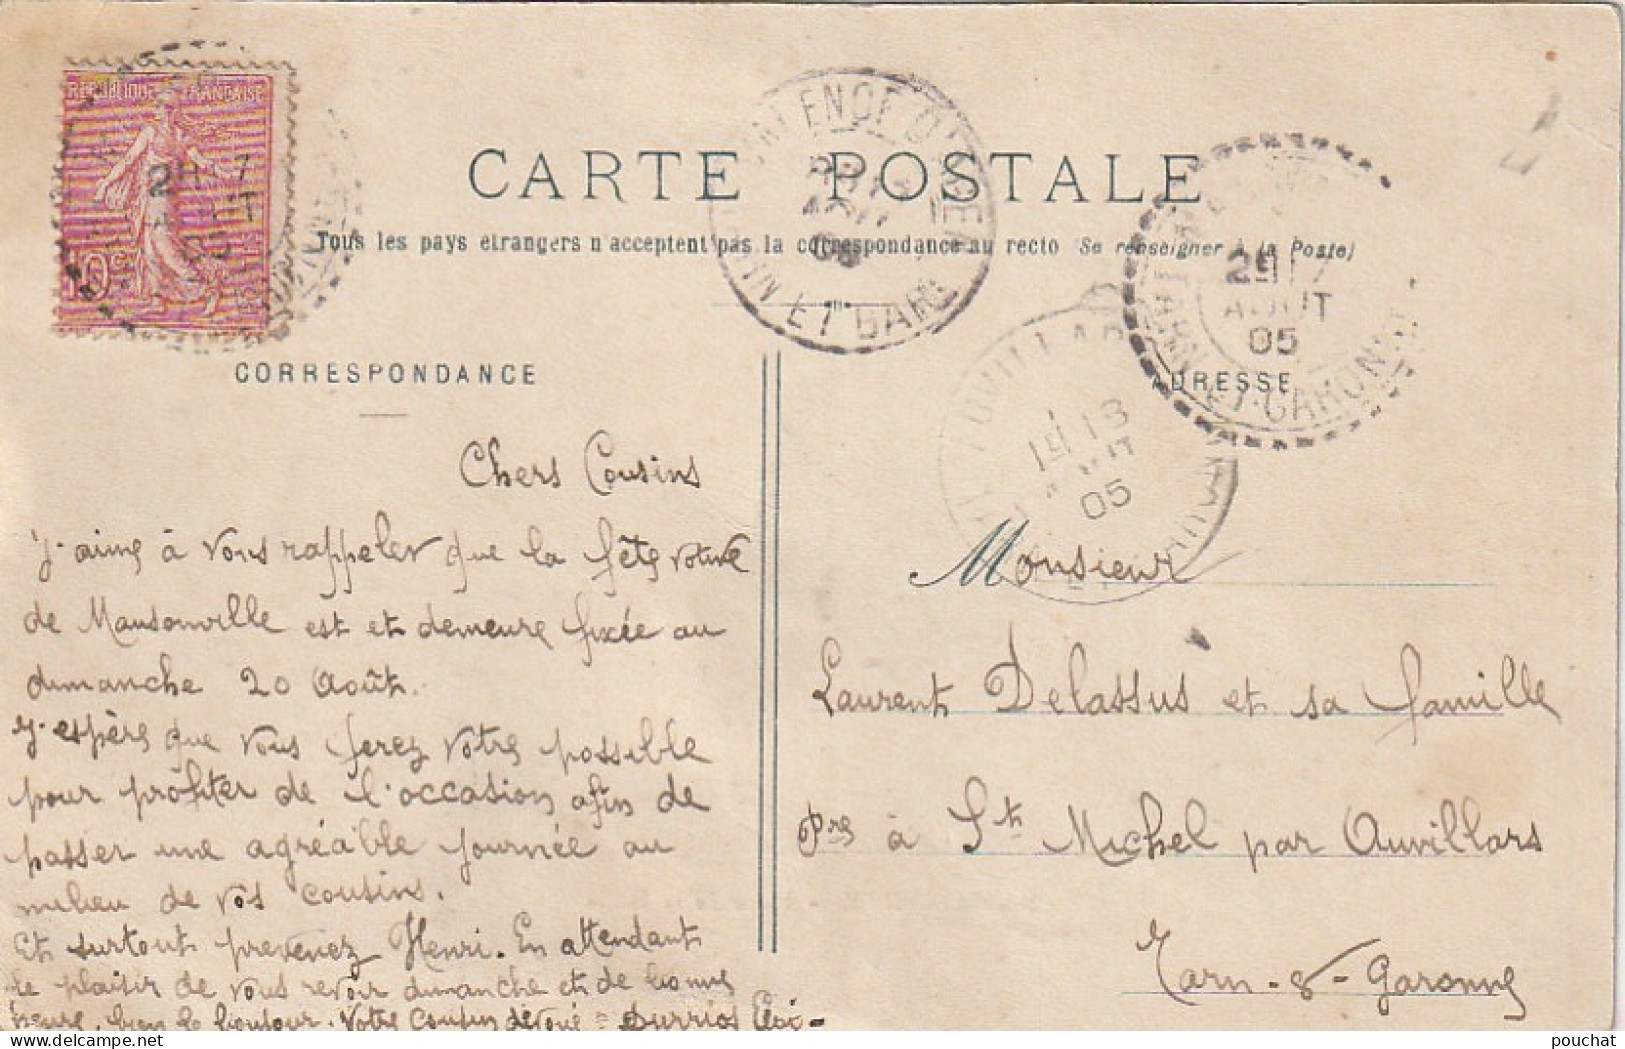 RÉPUBLIQUE FRANÇAISE
10
CARTE POSTALE
Tous les pays étrangers n'acceptent pas la correspondance au recto (Se renseigner à la Poste)
VALENCE D'AGEN
TARN ET GARONNE
AOUT
05
AUVILLAR
AOUT
05
AOUT
05
TARN-ET-GARONNE
CORRESPONDANCE
ADRESSE
Chers Cousins
J'aime à vous rappeler que la fête votive
de Mansonville est et demeure fixée au
dimanche 20 Août.
J'espère que vous ferez votre possible
pour profiter de l'occasion afin de
passer une agréable journée au
milieu de vos cousins.
Et surtout prevenez Henri. En attendant
le plaisir de vous revoir dimanche et de bonne
heure, bien le bonjour. Votre Cousin dévoué
Monsieur
Laurent Delassus et sa famille
Prè à St Michel par Auvillars
Tarn-&-Garonne
pouchat